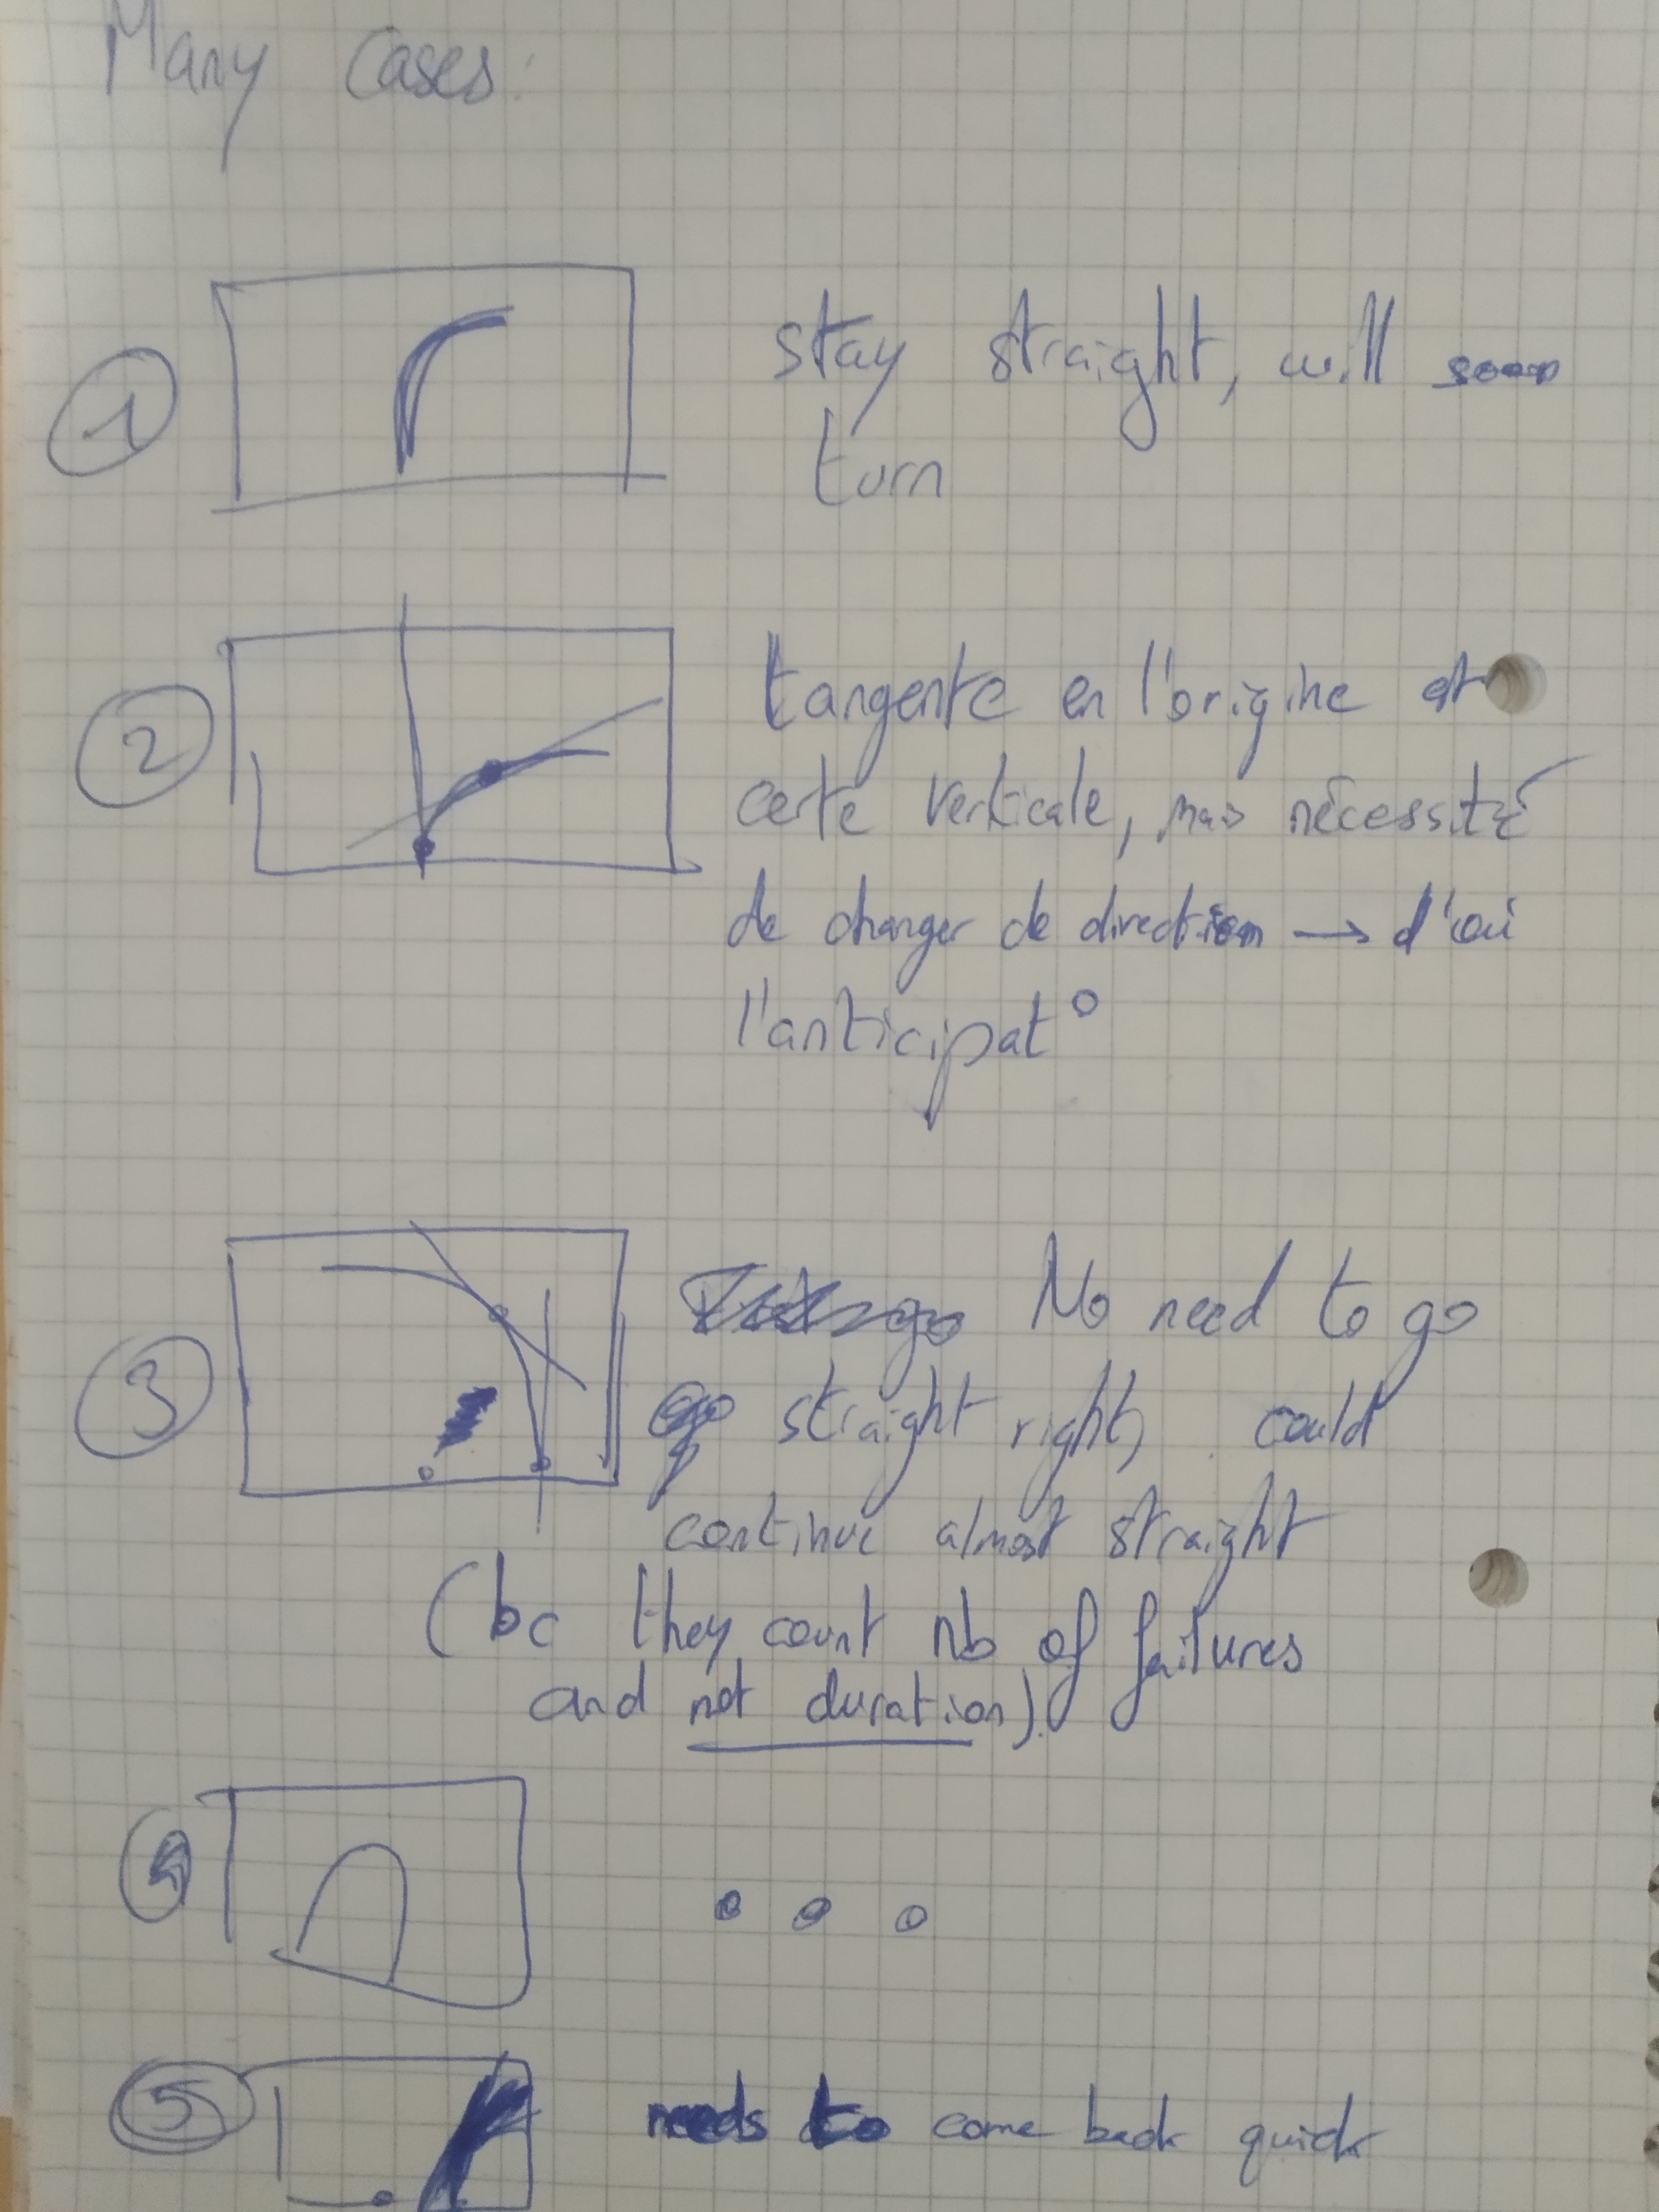 Many cases:
1
stay straight, will soon
turn
2
tangente en l'origine est
certe verticale, mais nécessité
de changer de direction → d'où
l'anticipat°
3
No need to go
straight right, could
continue almost straight
(bc they count nb of failures
and not duration).
4
5
needs to come back quick